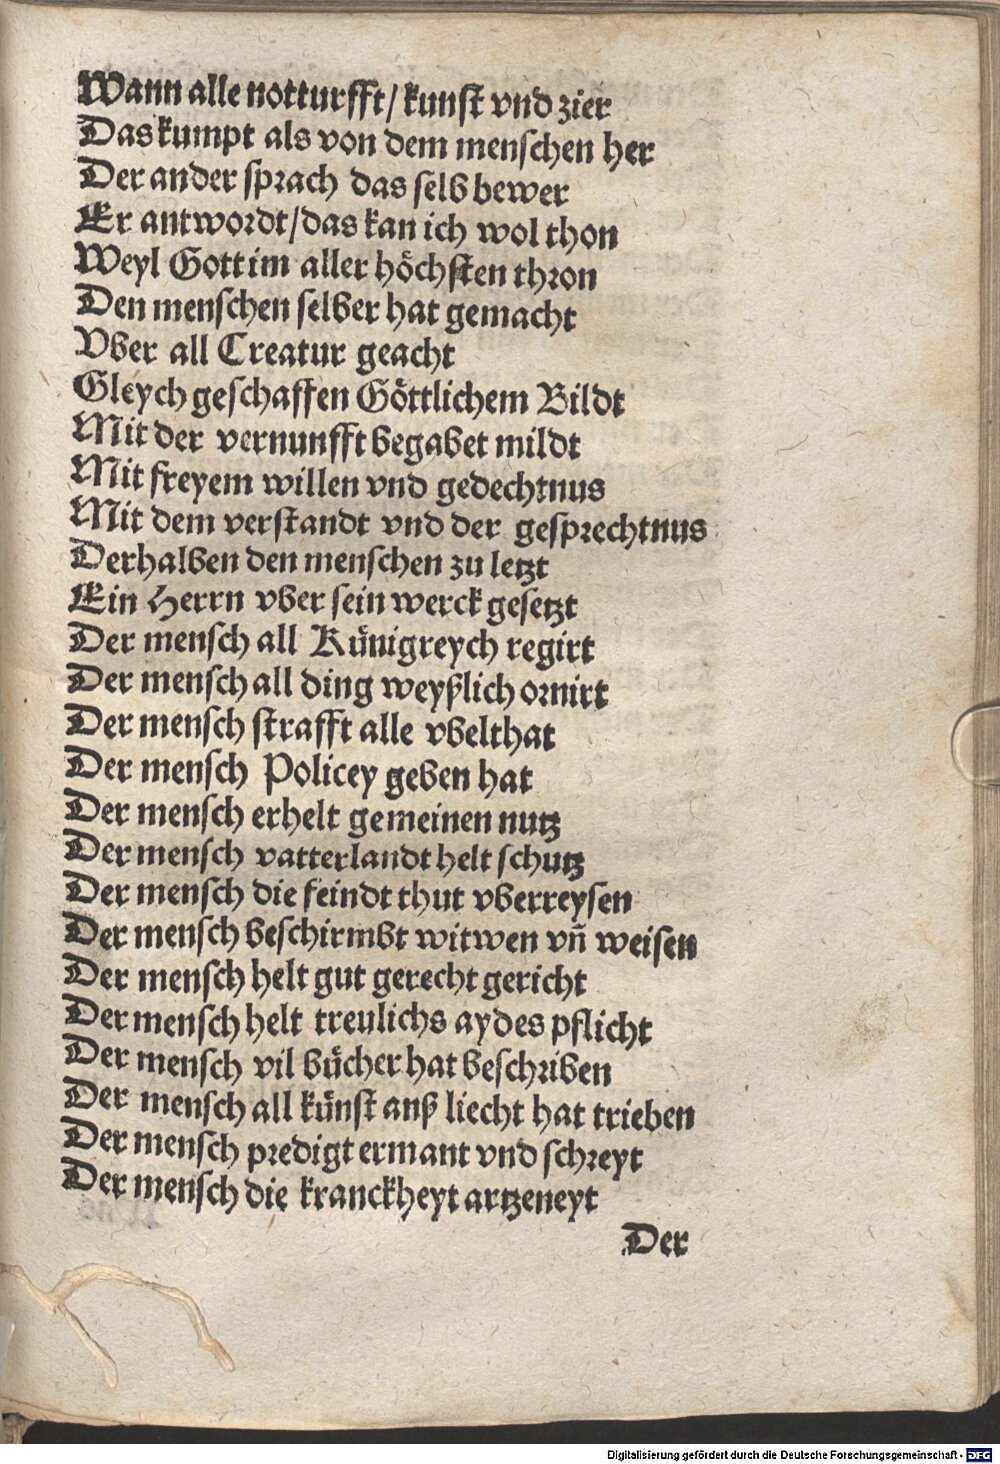 Wann alle notturfft/ kunst vnd zier
Das kumpt als von dem menschen her
Der ander sprach das selb bewer
Er antwordt/das kan ich wol thon
Weyl Gott im aller höchsten thron
Den menschen selber hat gemacht
Vber all Creatur geacht
Gleych geschaffen Göttlichem Bildt
Mit der vernunfft begabet mildt
Mit freyem willen vnd gedechtnus
Mit dem verstandt vnd der gesprechtnus
Derhalben den menschen zu letzt
Ein Herrn vber sein werck gesetzt
Der mensch all Künigreych regirt
Der mensch all ding weyßlich ornirt
Der mensch strafft alle vbelthat
Der mensch Policey geben hat
Der mensch erhelt gemeinen nutz
Der mensch vatterlandt helt schutz
Der mensch die feindt thut vberreysen
Der mensch beschirmbt witwen vñ weisen
Der mensch helt gut gerecht gericht
Der mensch helt treulichs aydes pflicht
Der mensch vil bücher hat beschriben
Der mensch all künst anß liecht hat trieben
Der mensch predigt ermant vnd schreyt
Der mensch die kranckheyt artzeneyt
Der
Digitalisierung gefördert durch die Deutsche Forschungsgemeinschaft - DFG